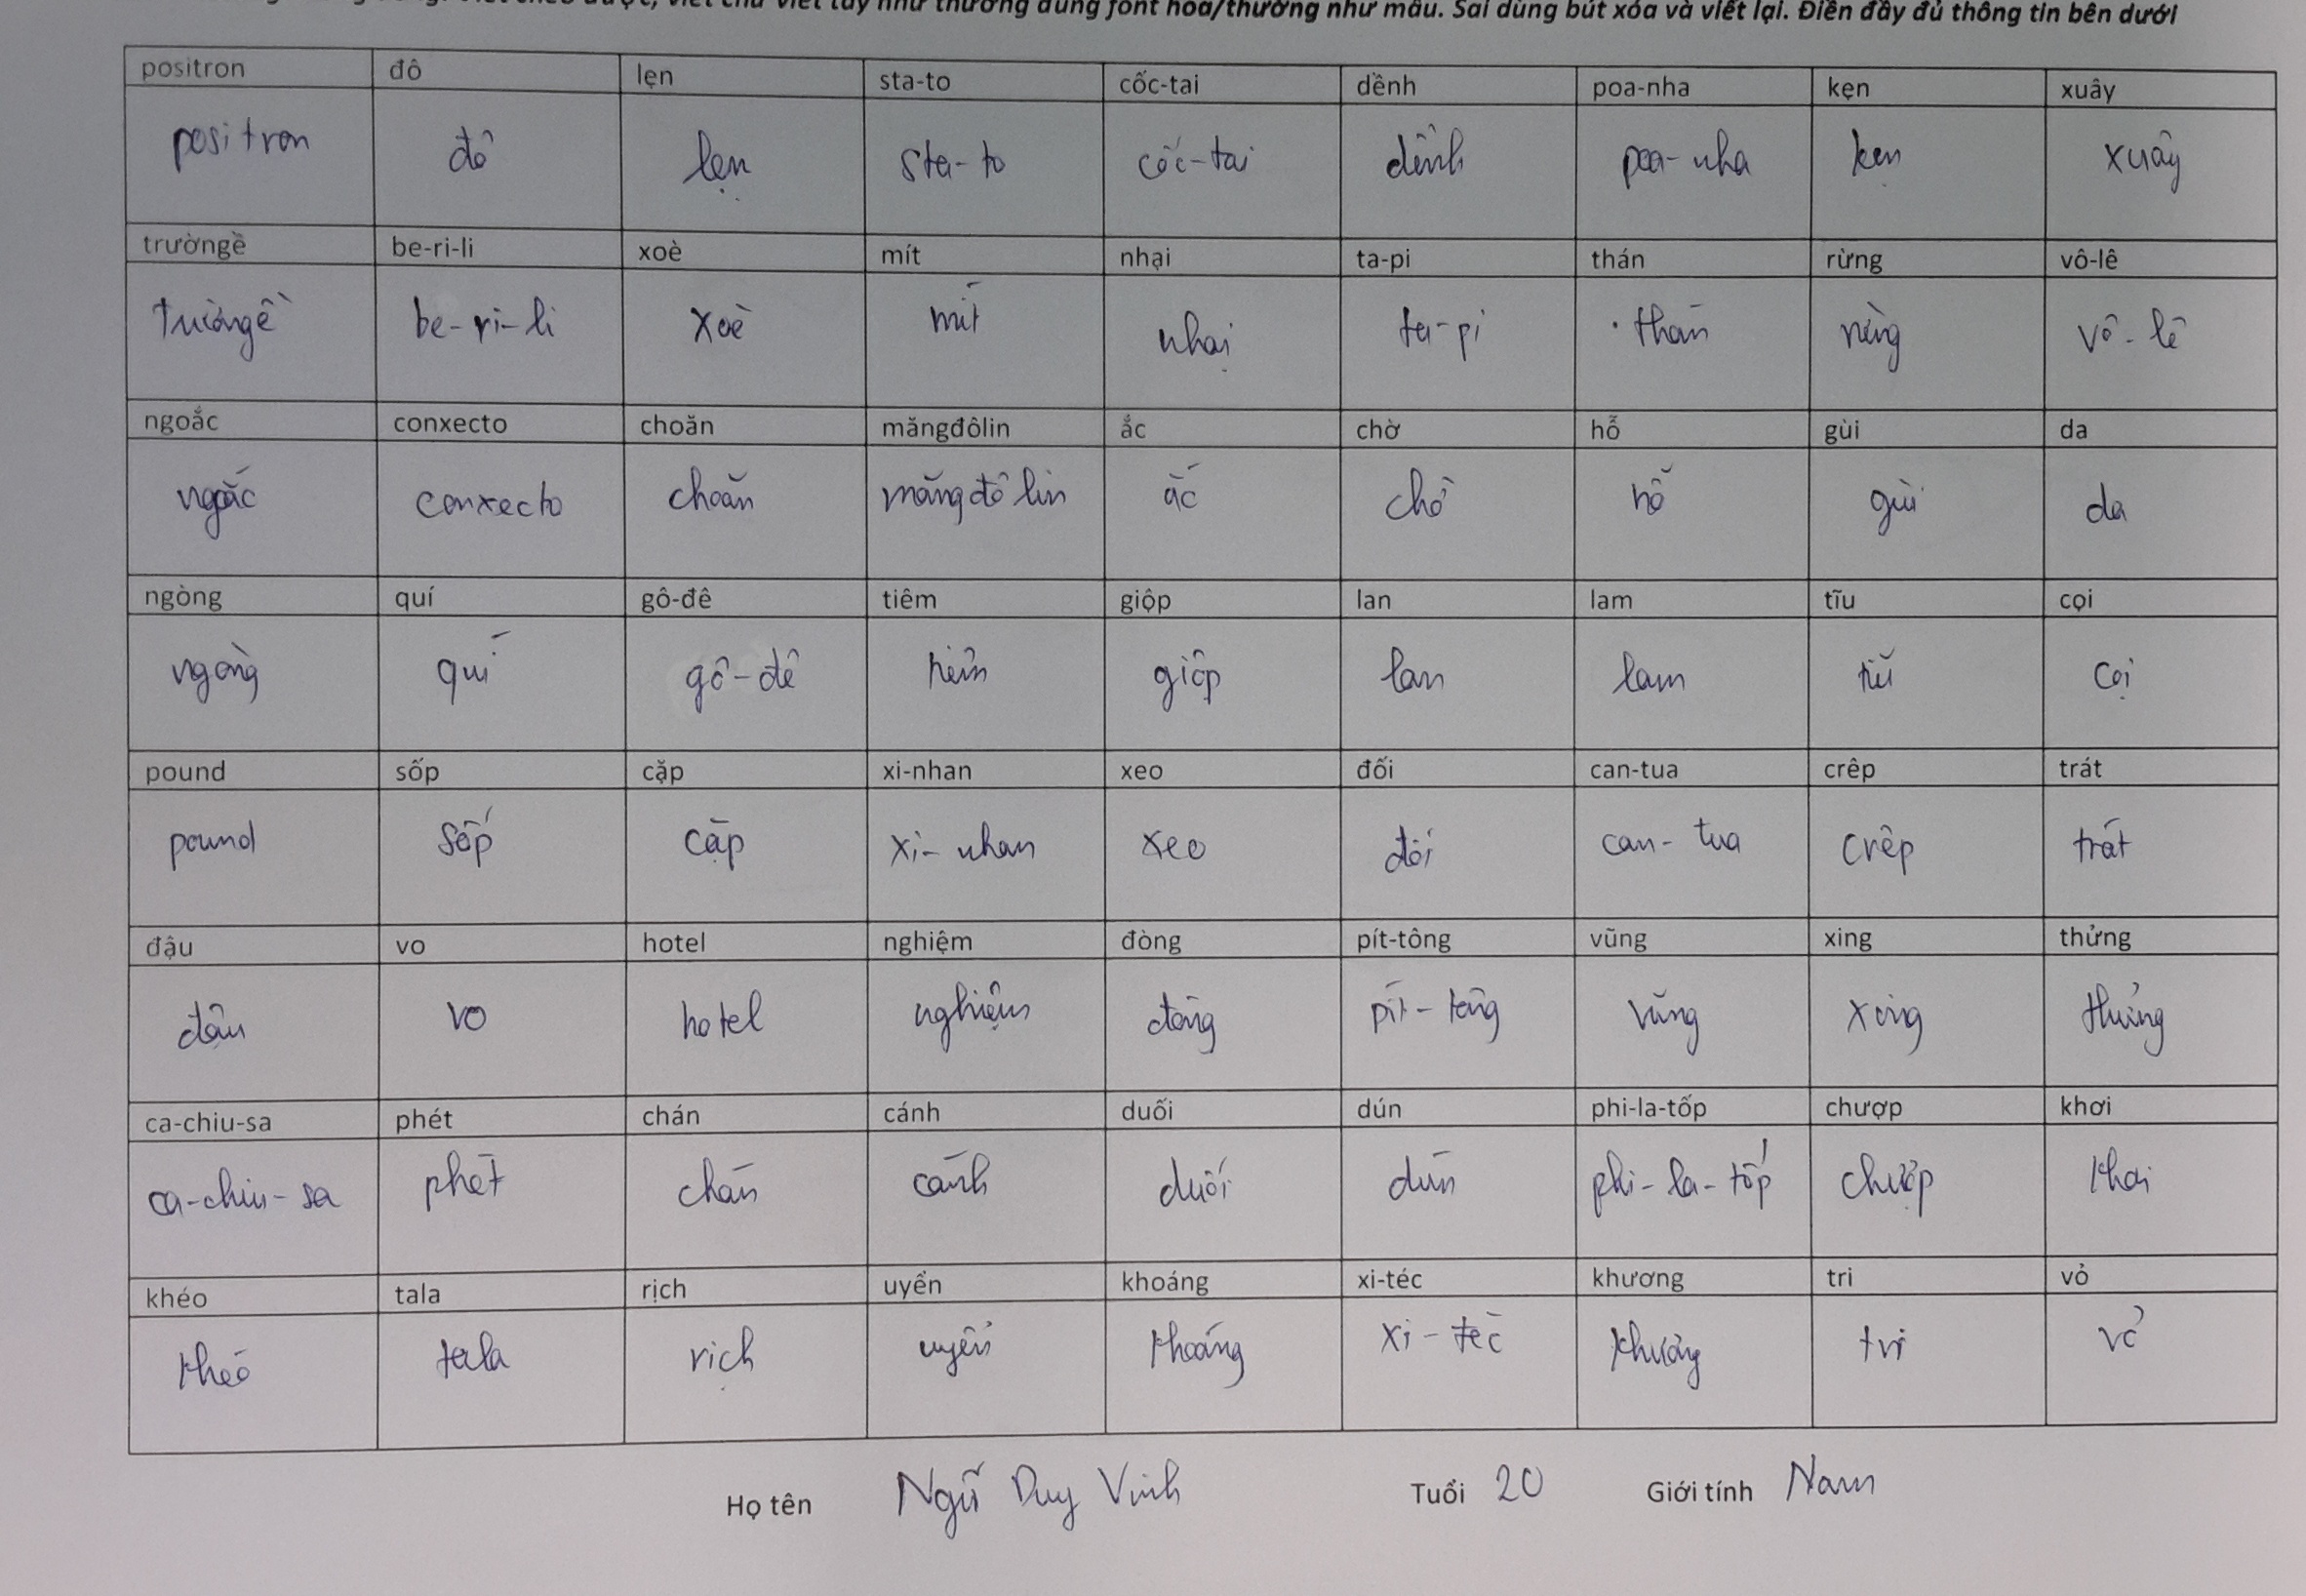 viết chữ viết tay như thường dùng font hoa/thường như mẫu. Sai dùng bút xóa và viết lại. Điền đầy đủ thông tin bên dưới
positron đô lẹn sta-to cốc-tai dềnh poa-nha kẹn xuây
positron đô lẹn sta-to cốc-tai dềnh poa-nha kẹn xuây
trườngề be-ri-li xoè mít nhại ta-pi thán rừng vô-lê
trườngề be-ri-li xoè mít nhại ta-pi thán rừng vô-lê
ngoắc conxecto choăn măngđôlin ắc chờ hỗ gùi da
ngoắc conxecto choăn măngđôlin ắc chờ hỗ gùi da
ngòng quí gô-đê tiêm giộp lan lam tĩu cọi
ngòng quí gô-đê tiêm giộp lan lam tĩu cọi
pound sốp cặp xi-nhan xeo đối can-tua crêp trát
pound sốp cặp xi-nhan xeo đối can-tua crêp trát
đậu vo hotel nghiệm đòng pít-tông vũng xing thửng
đậu vo hotel nghiệm đòng pít-tông vũng xing thửng
ca-chiu-sa phét chán cánh duối dún phi-la-tốp chượp khơi
ca-chiu-sa phét chán cánh duối dún phi-la-tốp chượp khơi
khéo tala rịch uyển khoáng xi-téc khương tri vỏ
khéo tala rịch uyển khoáng xi-téc khương tri vỏ
Họ tên Ngũ Duy Vinh Tuổi 20 Giới tính Nam